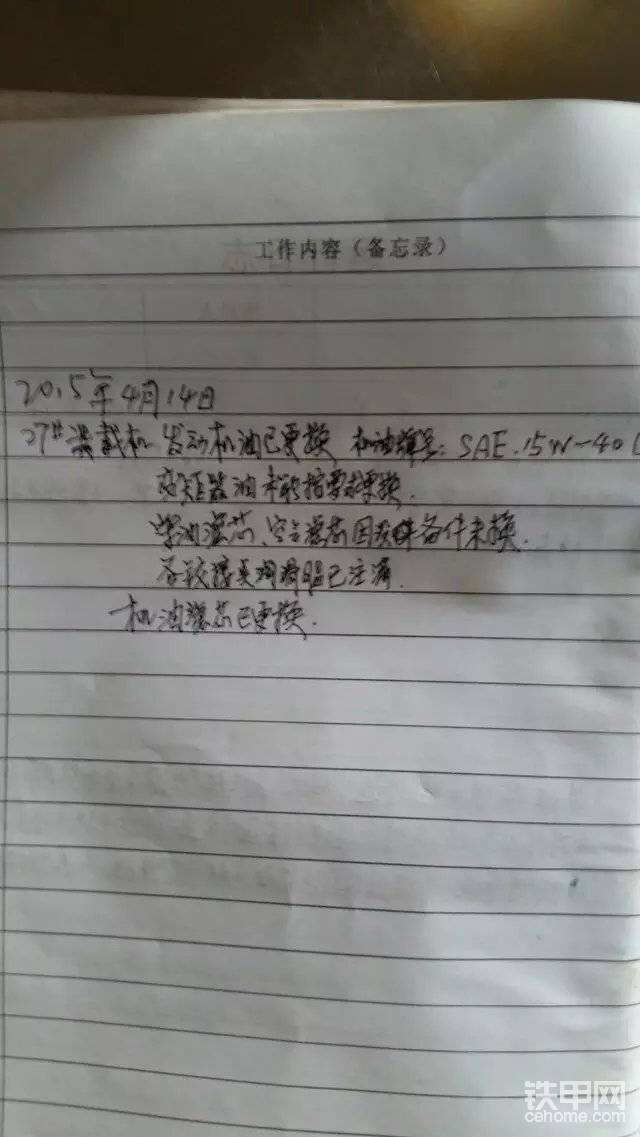 工作内容（备忘录）
2015年4月14日
27#装载机 发动机油已更换 机油牌号: SAE.15W-40
变矩器油未能按要求更换.
柴油滤芯、空气滤芯因无备件未换.
各铰接点润滑脂已注满.
机油滤芯已更换.
铁甲网
cehome.com